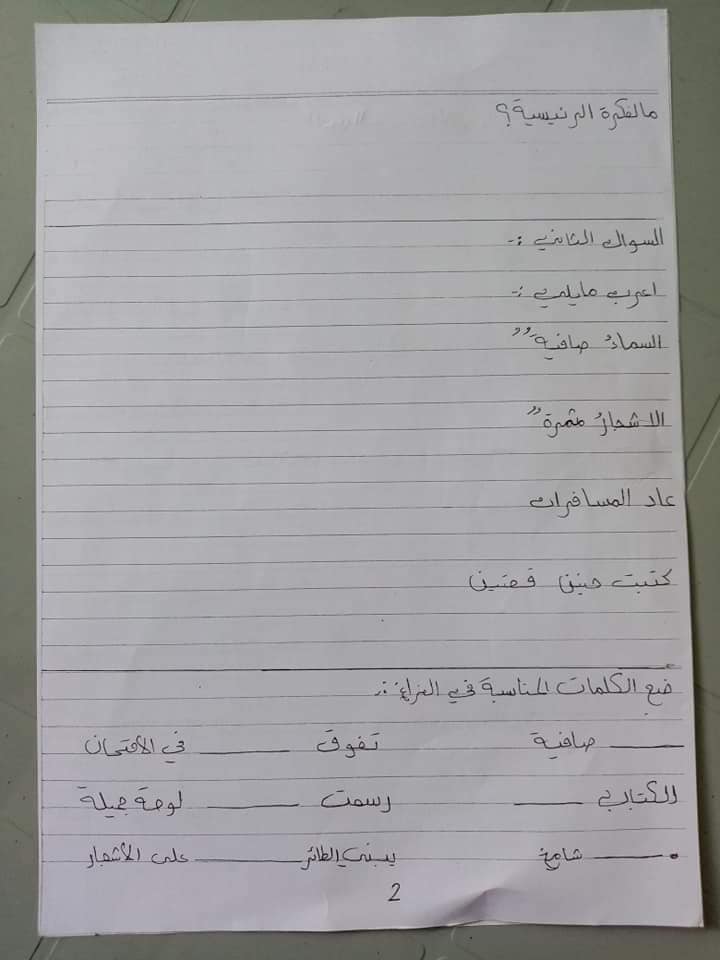 مالفكرة الرئيسية؟
السوال الثاني :-
اعرب مايلي :-
السماءُ صافيةٌ
الاشجارُ مثمرةٌ
عاد المسافران
كتبت حنين قصتين
ضع الكلمات المناسبة في الفراغ :-
_____ صافية تفوق _____ في الامتحان
الكتاب _____ رسمت _____ لوحة جميلة
_____ شامخ يبني الطائر _____ على الأشجار
2